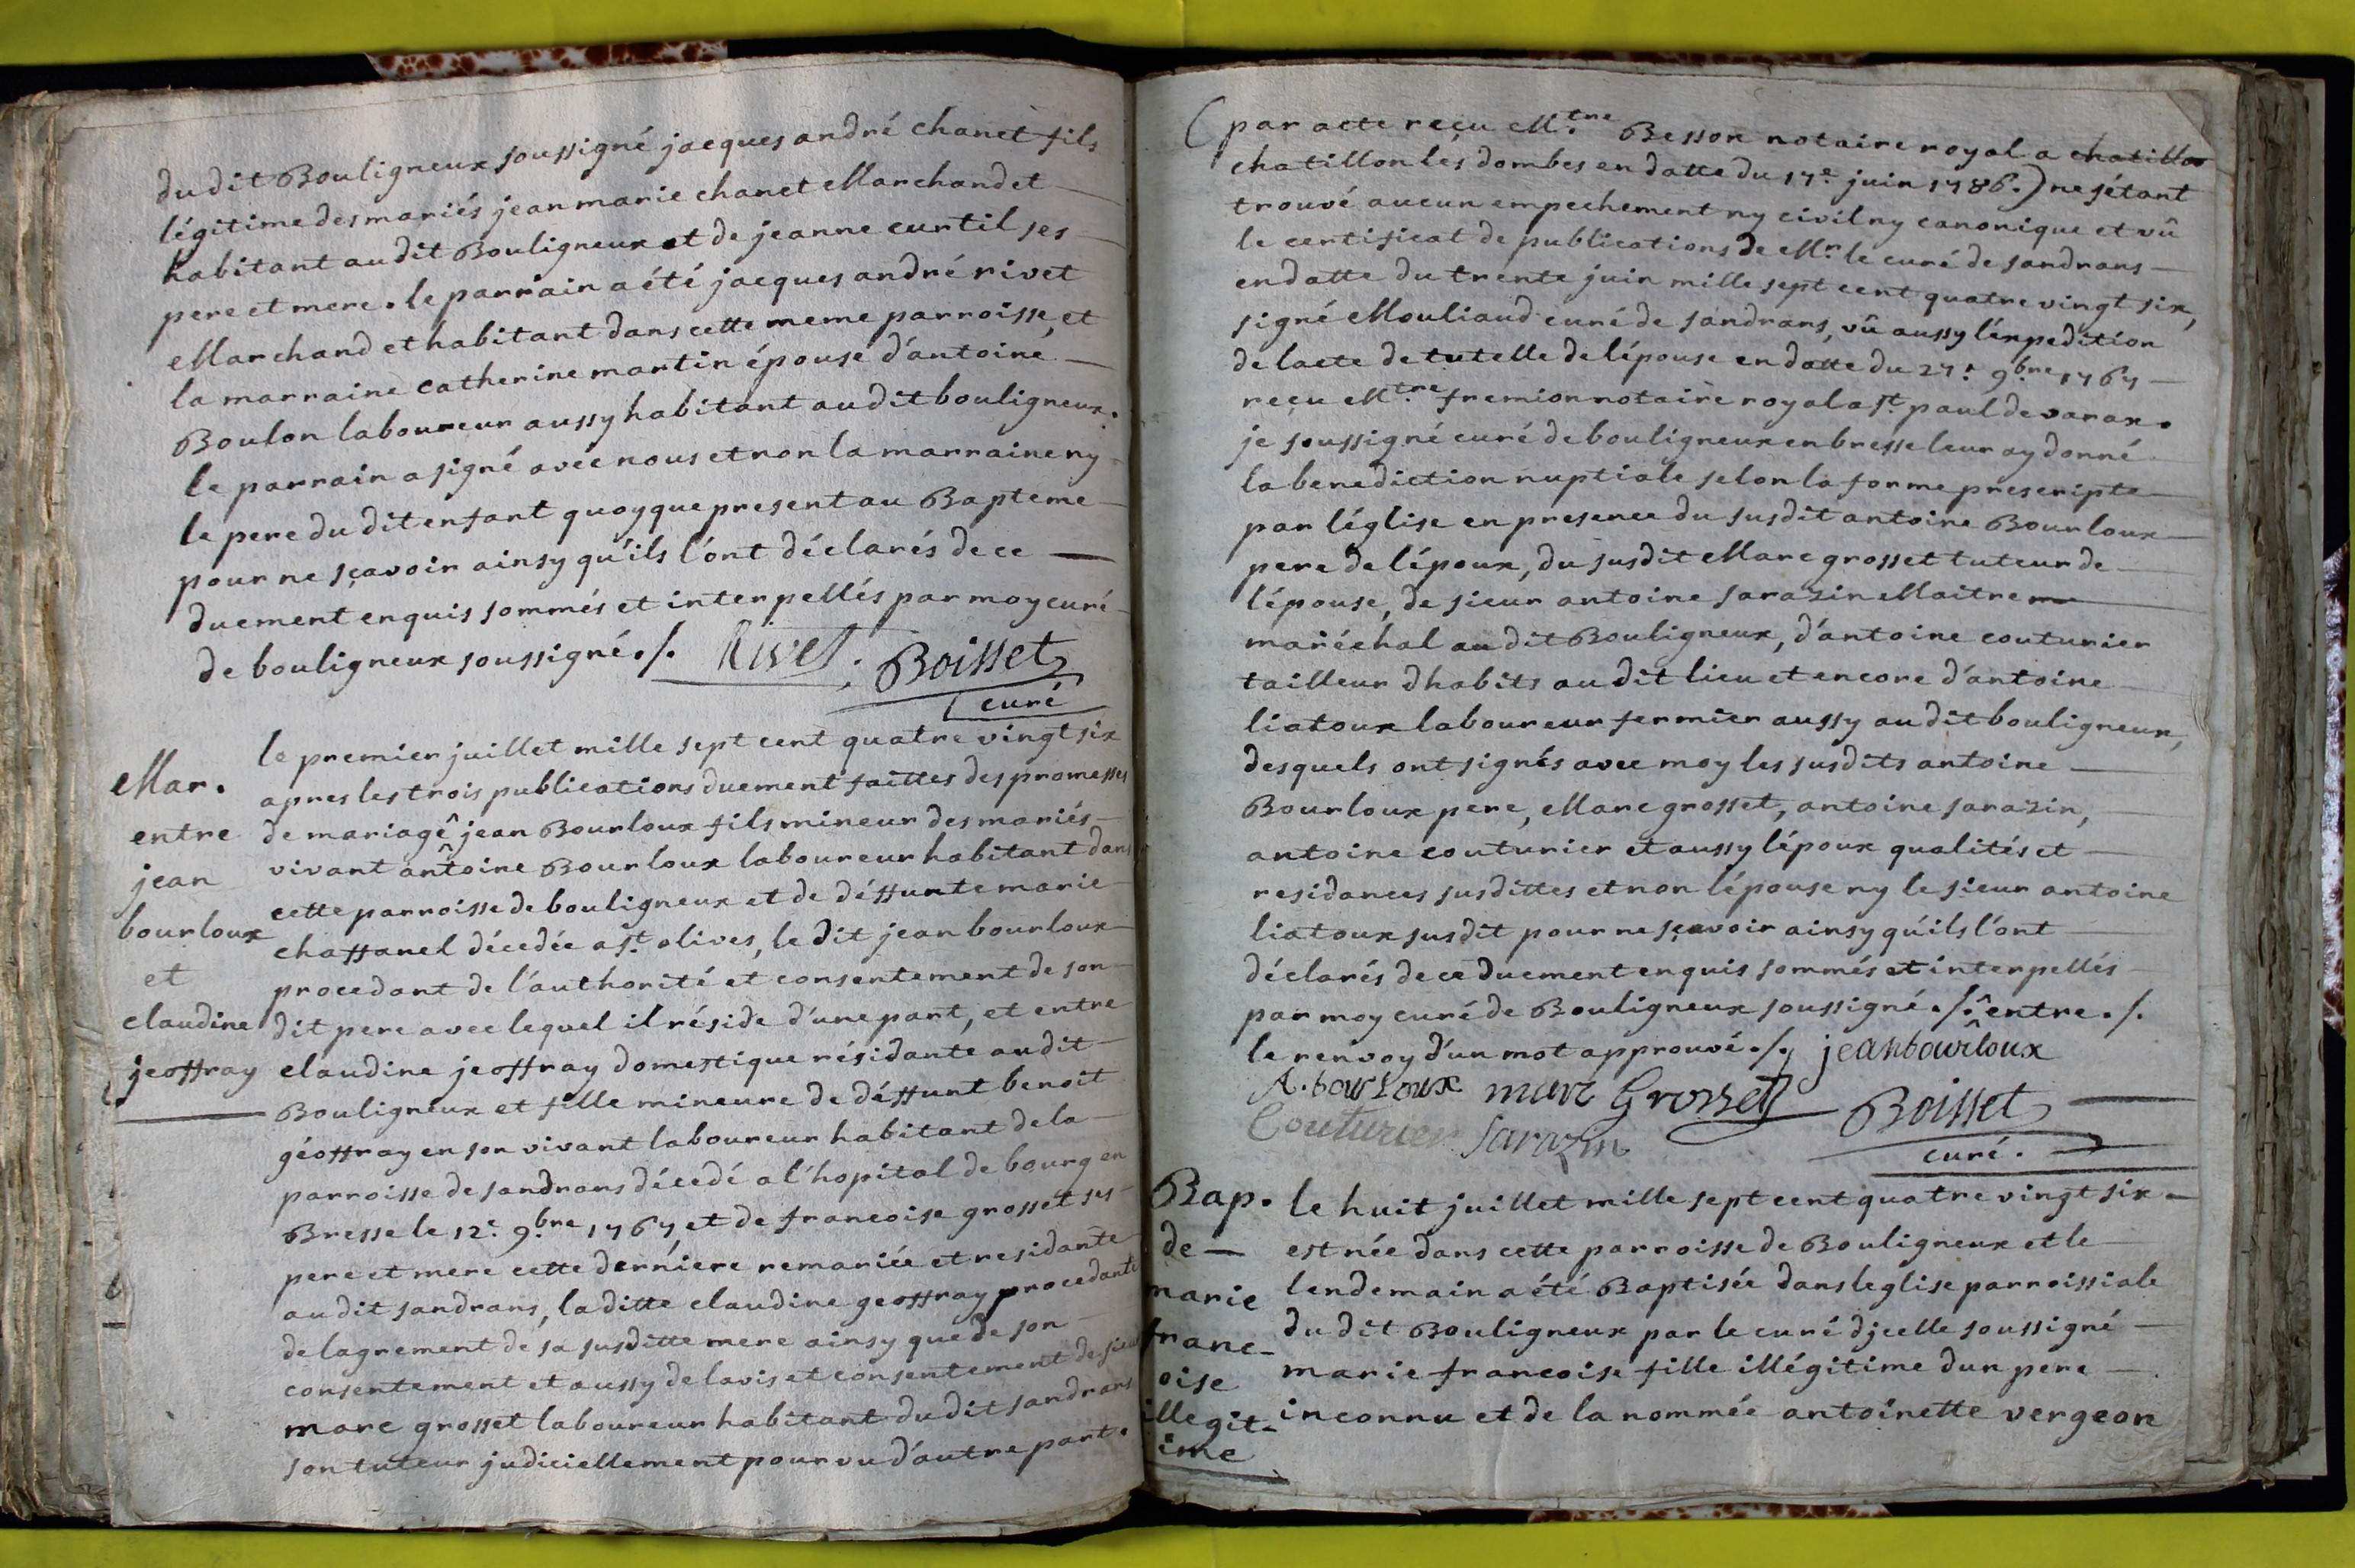 du dit Bouligneux soussigné jacques andré chanet fils
légitime des mariés jean marie chanet Marchand et
habitant au dit Bouligneux et de jeanne curtil ses
pere et mere. le parrain a été jacques andré rivet
Marchand et habitant dans cette meme parroisse, et
la marraine catherine martin épouse d'antoine
Boulon laboureur aussy habitant au dit bouligneux.
le parrain a signé avec nous et non la marraine ny
le pere du dit enfant quoyque present au Bapteme
pour ne sçavoir ainsy qu'ils l'ont déclarés de ce
duement enquis sommés et interpellés par moy curé
de bouligneux soussigné ./. Rivet. Boisset
curé
Mar.
entre
jean
bourloux
et
claudine
jeoffray
le premier juillet mille sept cent quatre vingt six
apres les trois publications duement faittes des promesses
de mariagê jean Bourloux fils mineur des mariés
vivant antoine Bourloux laboureur habitant dans
cette parroisse de bouligneux et de déffunte marie
chaffanel décedée a st. olives, le dit jean bourloux
procedant de l'authorité et consentement de son
dit pere avec lequel il réside d'une part, et entre
claudine jeoffray domestique résidante au dit
Bouligneux et fille mineure de déffunt benoit
géoffray en son vivant laboureur habitant de la
parroisse de sandrans décedé a l'hopital de bourg en
Bresse le 12e. 9bre 1767, et de francoise grosset ses
pere et mere cette derniere remariée et residante
au dit sandrans, la ditte claudine geoffray procedante
de lagrement de sa susditte mere ainsy que de son
consentement et aussy de lavis et consentement de sieur
marc grosset laboureur habitant du dit sandrans
son tuteur judiciellement pourvu d'autre part.
(par acte reçu M.tre Besson notaire royal a chatillon
chatillon les dombes en datte du 17e. juin 1786.) ne sétant
trouvé aucun empechement ny civil ny canonique et vû
le certificat de publications de Mr. le curé de sandrans
en datte du trente juin mille sept cent quatre vingt six,
signé Mouliaud curé de sandrans, vû aussy l'éxpedition
de lacte de tutelle de lépouse en datte du 27e. 9bre 1767
reçu M.tre fremion notaire royal a st. paul de varax.
je soussigné curé de bouligneux en bresse leur ay donné
la benediction nuptiale selon la forme prescripte
par léglise en presence du susdit antoine Bourloux
pere de lépoux, du susdit Marc grosset tuteur de
lépouse, de sieur antoine sarazin Maitre
maréchal au dit Bouligneux, d'antoine couturier
tailleur dhabits au dit lieu et encore d'antoine
liatoux laboureur fermier aussy au dit bouligneux,
desquels ont signés avec moy les susdits antoine
Bourloux pere, Marc grosset, antoine sarazin,
antoine couturier et aussy lépoux qualités et
residances susdittes et non lépouse ny le sieur antoine
liatoux susdit pour ne sçavoir ainsy qu'ils l'ont
déclarés de ce duement enquis sommés et interpellés
par moy curé de Bouligneux soussigné ./. ê entre ./.
le renvoy d'un mot approuvé ./. jean bourloux
A. bourloux marc Grosset Boisset
Couturier Sarazin
curé.
Bap.
de
marie
franc-
oise
illegit-
ime
le huit juillet mille sept cent quatre vingt six
est née dans cette parroisse de Bouligneux et le
lendemain a été Baptisée dans leglise parroissiale
du dit Bouligneux par le curé djcelle soussigné
marie francoise fille illégitime dun pere
inconnu et de la nommée antoinette vergeon